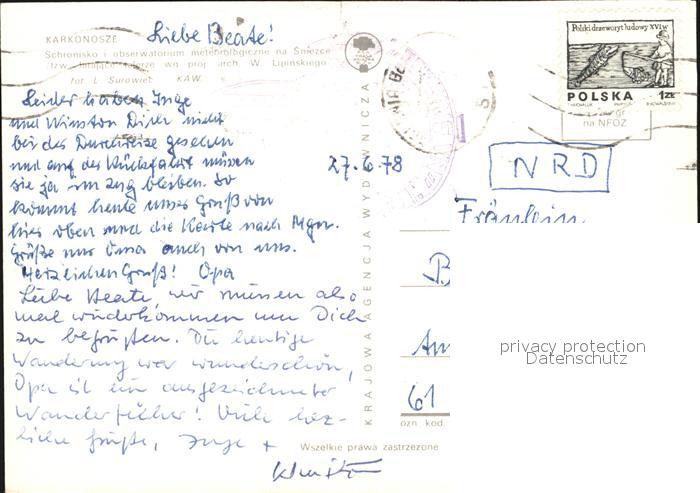 Liebe Beate!
KARKONOSZE
Schronisko i obserwatorium meteorologiczne na Śnieżce
/tzw. talerze wg proj. arch. W. Lipińskiego
fot. L. Surowiec KAW
Leider haben Inge
und Winston Dich nicht
bei der Durchreise gesehen
und auf der Rückfahrt müssen
sie ja im Zug bleiben. So
kommt heute unser Gruß von
hier oben und die Karte nach Mgn.
Grüße nur Oma auch von uns.
Herzlichen Gruß! Opa
Liebe Beate, wir müssen also
mal wiederkommen um Dich
zu begrüßen. Die heutige
Wanderung war wunderschön,
Opa ist ein ausgezeichneter
Wanderführer! Viele herz-
liche Grüße, Inge +
27.6.78
KRAJOWA AGENCJA WYDAWNICZA
Polski drzeworyt ludowy XVI w
POLSKA 1 ZŁ
gr
na NFOZ
NRD
Fräulein
B
An
61
ozn. kod.
Wszelkie prawa zastrzeżone
privacy protection
Datenschutz